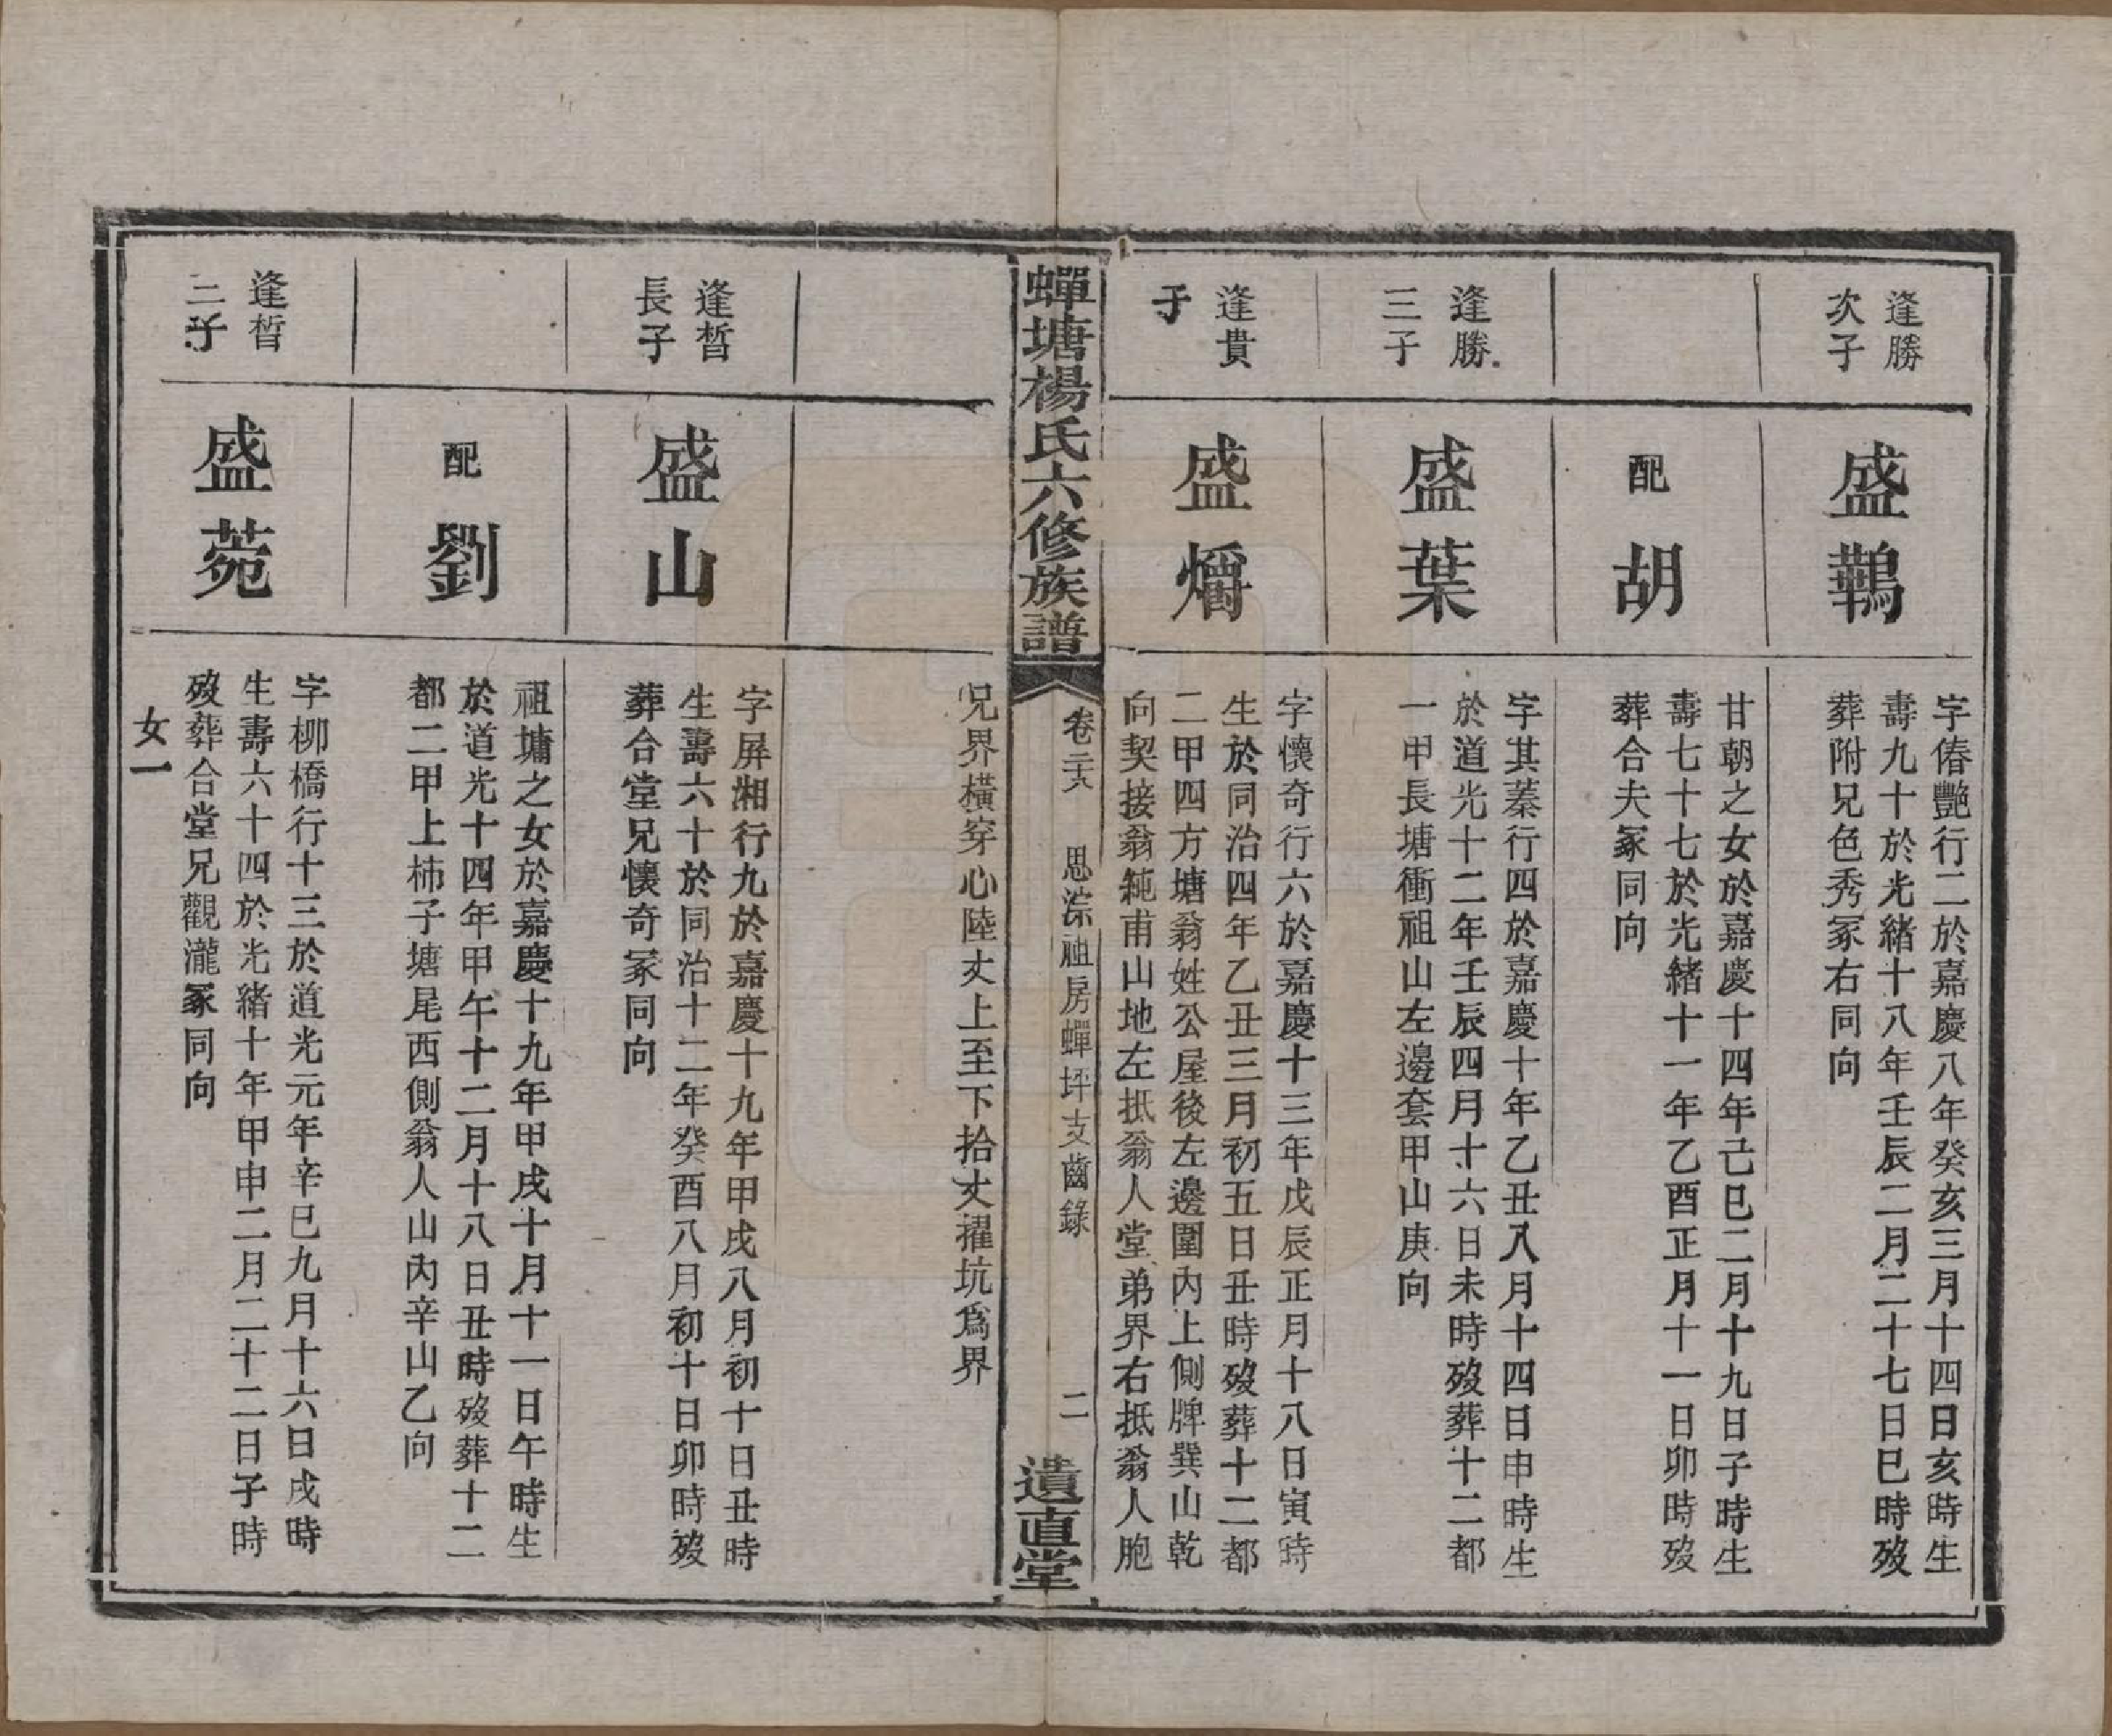 逢勝
次子
盛鷨
字偆艷行二於嘉慶八年癸亥三月十四日亥時生
壽九十於光緒十八年壬辰二月二十七日巳時歿
葬附兄色秀冢右同向
配胡
甘朝之女於嘉慶十四年己巳二月十九日子時生
壽七十七於光緒十一年乙酉正月十一日卯時歿
葬合夫冢同向
逢勝
三子
盛葉
字其蓁行四於嘉慶十年乙丑八月十四日申時生
於道光十二年壬辰四月十六日未時歿葬十二都
一甲長塘衝祖山左邊套甲山庚向
逢貴
子
盛爝
字懷奇行六於嘉慶十三年戊辰正月十八日寅時
生於同治四年乙丑三月初五日丑時歿葬十二都
二甲四方塘翁姓公屋後左邊圍內上側牌巽山乾
向契接翁純甫山地左抵翁人堂弟界右抵翁人胞
蟬塘楊氏六修族譜
卷二十六
思淙祖房蟬坪支齒錄
二
遺直堂
兄界橫穿心陸丈上至下拾丈擢坑為界
逢晢
長子
盛山
字屏湘行九於嘉慶十九年甲戌八月初十日丑時
生壽六十於同治十二年癸酉八月初十日卯時歿
葬合堂兄懷奇冢同向
配劉
祖墉之女於嘉慶十九年甲戌十月十一日午時生
於道光十四年甲午十二月十八日丑時歿葬十二
都二甲上柿子塘尾西側翁人山內辛山乙向
逢晢
二子
盛菀
字柳橋行十三於道光元年辛巳九月十六日戌時
生壽六十四於光緒十年甲申二月二十二日子時
歿葬合堂兄觀瀧冢同向
女一